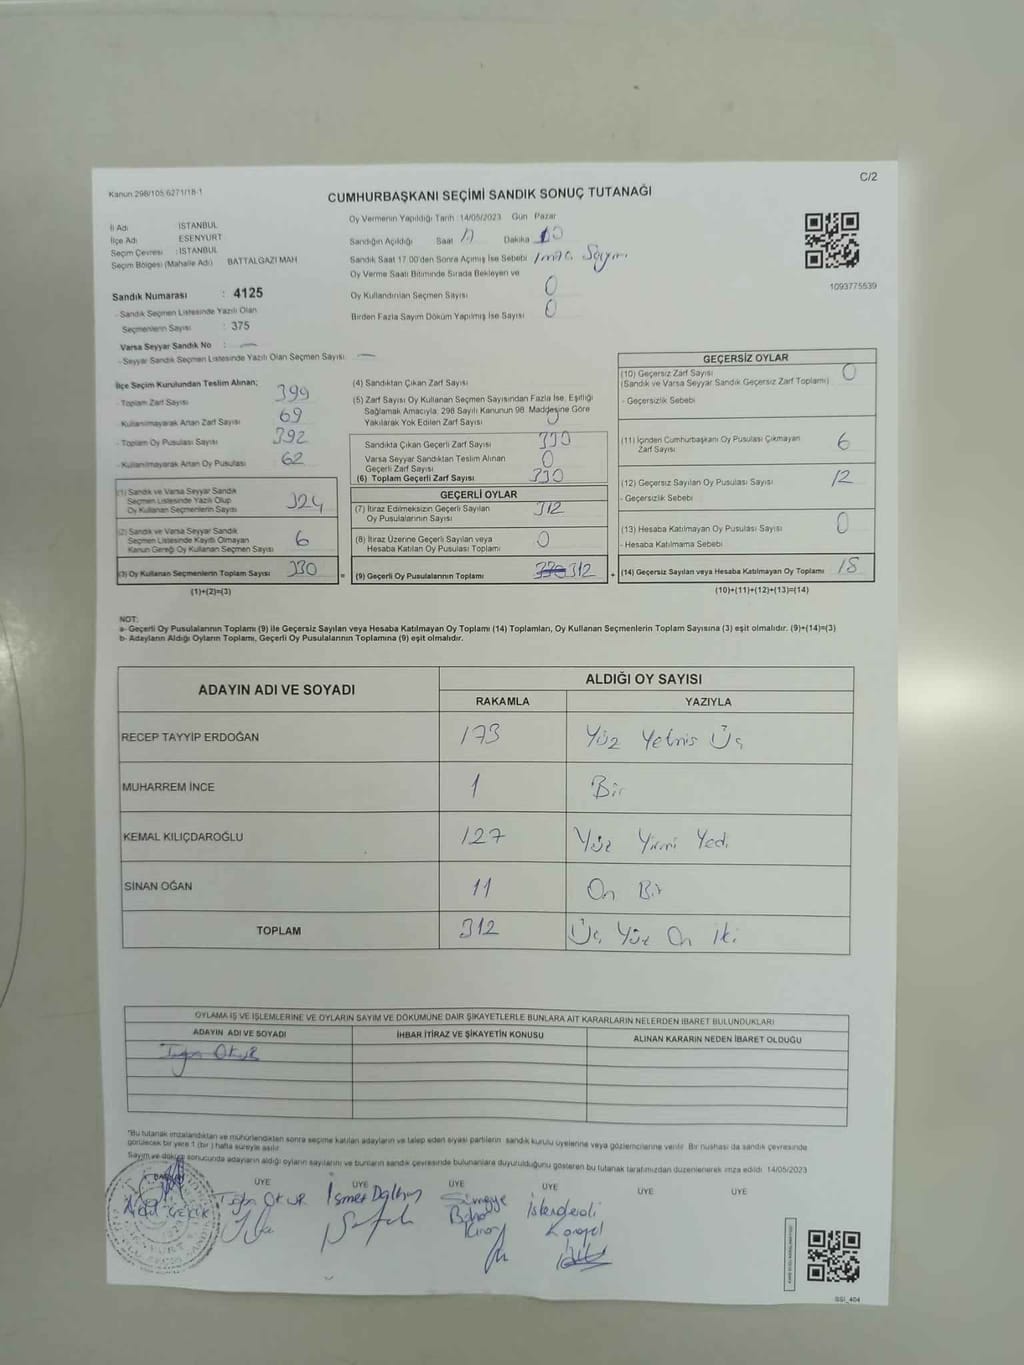 C/2
Kanun 298/105 6271/18-1
CUMHURBAŞKANI SEÇİMİ SANDIK SONUÇ TUTANAĞI
İl Adı : İSTANBUL
İlçe Adı : ESENYURT
Seçim Çevresi : İSTANBUL
Seçim Bölgesi (Mahalle Adı) : BATTALGAZİ MAH
Sandık Numarası : 4125
- Sandık Seçmen Listesinde Yazılı Olan
Seçmenlerin Sayısı : 375
Varsa Seyyar Sandık No : —
- Seyyar Sandık Seçmen Listesinde Yazılı Olan Seçmen Sayısı: —
Oy Vermenin Yapıldığı Tarih :14/05/2023 Gün Pazar
Sandığın Açıldığı Saat 17 Dakika
Sandık Saat 17.00'den Sonra Açılmış İse Sebebi İmza Sayımı
Oy Verme Saati Bitiminde Sırada Bekleyen ve
Oy Kullandırılan Seçmen Sayısı 0
Birden Fazla Sayım Döküm Yapılmış İse Sayısı 0
1093775539
İlçe Seçim Kurulundan Teslim Alınan;
- Toplam Zarf Sayısı 399
- Kullanılmayarak Artan Zarf Sayısı 69
- Toplam Oy Pusulası Sayısı 392
- Kullanılmayarak Artan Oy Pusulası 62
(1) Sandık ve Varsa Seyyar Sandık
Seçmen Listesinde Yazılı Olup
Oy Kullanan Seçmenlerin Sayısı 324
(2) Sandık ve Varsa Seyyar Sandık
Seçmen Listesinde Kayıtlı Olmayan
Kanun Gereği Oy Kullanan Seçmen Sayısı 6
(3) Oy Kullanan Seçmenlerin Toplam Sayısı 330
(1)+(2)=(3)
(4) Sandıktan Çıkan Zarf Sayısı
(5) Zarf Sayısı Oy Kullanan Seçmen Sayısından Fazla İse, Eşitliği
Sağlamak Amacıyla, 298 Sayılı Kanunun 98. Maddesine Göre
Yakılarak Yok Edilen Zarf Sayısı 0
Sandıkta Çıkan Geçerli Zarf Sayısı 330
Varsa Seyyar Sandıktan Teslim Alınan
Geçerli Zarf Sayısı 0
(6) Toplam Geçerli Zarf Sayısı 330
GEÇERLİ OYLAR
(7) İtiraz Edilmeksizin Geçerli Sayılan
Oy Pusulalarının Sayısı 312
(8) İtiraz Üzerine Geçerli Sayılan veya
Hesaba Katılan Oy Pusulası Toplamı 0
= (9) Geçerli Oy Pusulalarının Toplamı 330 312 +
GEÇERSİZ OYLAR
(10) Geçersiz Zarf Sayısı 0
(Sandık ve Varsa Seyyar Sandık Geçersiz Zarf Toplamı)
- Geçersizlik Sebebi
(11) İçinden Cumhurbaşkanı Oy Pusulası Çıkmayan
Zarf Sayısı 6
(12) Geçersiz Sayılan Oy Pusulası Sayısı 12
- Geçersizlik Sebebi
(13) Hesaba Katılmayan Oy Pusulası Sayısı 0
- Hesaba Katılmama Sebebi
(14) Geçersiz Sayılan veya Hesaba Katılmayan Oy Toplamı 18
(10)+(11)+(12)+(13)=(14)
NOT:
a- Geçerli Oy Pusulalarının Toplamı (9) ile Geçersiz Sayılan veya Hesaba Katılmayan Oy Toplamı (14) Toplamları, Oy Kullanan Seçmenlerin Toplam Sayısına (3) eşit olmalıdır. (9)+(14)=(3)
b- Adayların Aldığı Oyların Toplamı, Geçerli Oy Pusulalarının Toplamına (9) eşit olmalıdır.
ADAYIN ADI VE SOYADI
ALDIĞI OY SAYISI
RAKAMLA YAZIYLA
RECEP TAYYİP ERDOĞAN 173 Yüz Yetmis Üç
MUHARREM İNCE 1 Bir
KEMAL KILIÇDAROĞLU 127 Yüz Yirmi Yedi
SİNAN OĞAN 11 On Bir
TOPLAM 312 Üç Yüz On İki
OYLAMA İŞ VE İŞLEMLERİNE VE OYLARIN SAYIM VE DÖKÜMÜNE DAİR ŞİKAYETLERLE BUNLARA AİT KARARLARIN NELERDEN İBARET BULUNDUKLARI
ADAYIN ADI VE SOYADI İHBAR İTİRAZ VE ŞİKAYETİN KONUSU ALINAN KARARIN NEDEN İBARET OLDUĞU
*Bu tutanak imzalandıktan ve mühürlendikten sonra seçime katılan adayların ve talep eden siyasi partilerin sandık kurulu üyelerine veya gözlemcilerine verilir. Bir nushası da sandık çevresinde
görülecek bir yere 1 (bir) hafta süreyle asılır.
Sayım ve döküm sonucunda adayların aldığı oyların sayılarını ve bunların sandık çevresinde bulunanlara duyurulduğunu gösteren bu tutanak tarafımızdan düzenlenerek imza edildi. 14/05/2023
BAŞKAN ÜYE ÜYE ÜYE ÜYE ÜYE ÜYE
SSI_404